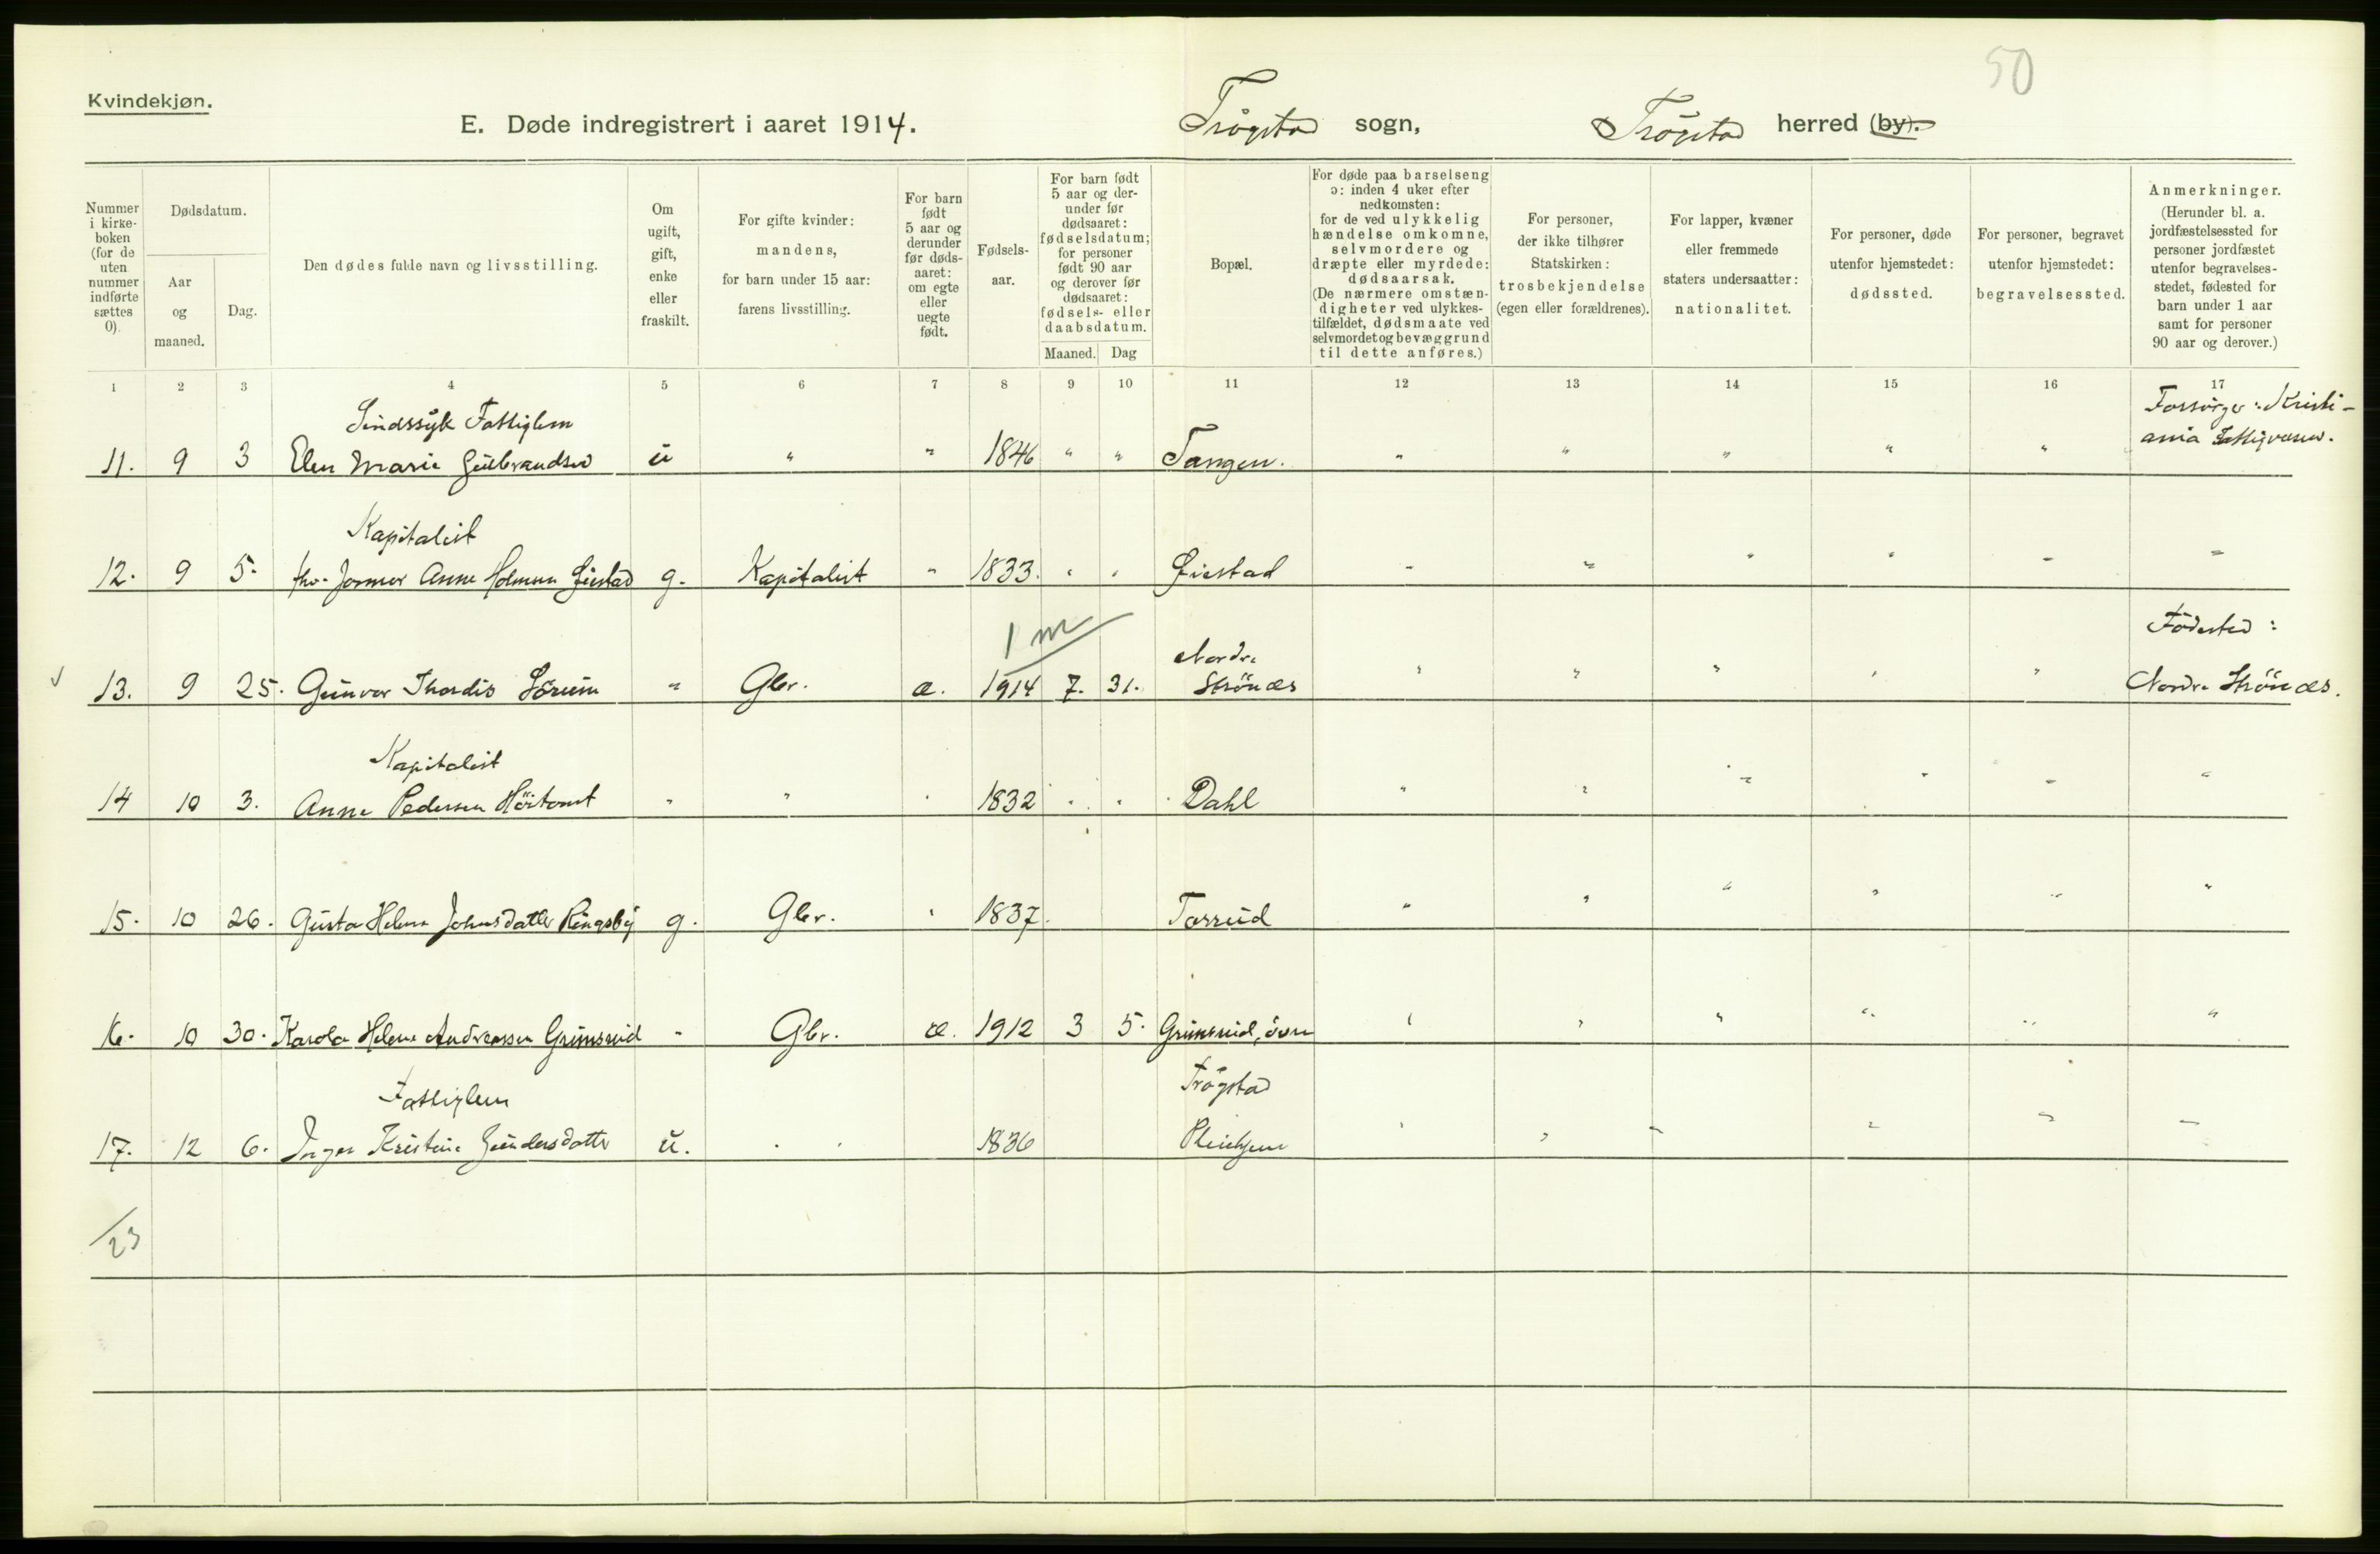 50
Kvindekjøn.
E. Døde indregistrert i aaret 1914. Trögstad sogn, Trögstad herred (by).
Nummer i kirke-boken (for de uten nummer indførte sættes 0).
Dødsdatum.
Aar og maaned.
Dag.
Den dødes fulde navn og livsstilling.
Om ugift, gift, enke eller fraskilt.
For gifte kvinder: mandens, for barn under 15 aar: farens livsstilling.
For barn født 5 aar og derunder før døds-aaret: om egte eller uegte født.
Fødsels-aar.
For barn født 5 aar og der-under før dødsaaret: fødselsdatum; for personer født 90 aar og derover før dødsaaret: fødsels- eller daabsdatum.
Maaned. Dag
Bopæl.
For døde paa barselseng ɔ: inden 4 uker efter nedkomsten: for de ved ulykkelig hændelse omkomne, selvmordere og dræpte eller myrdede: dødsaarsak. (De nærmere omstæn-digheter ved ulykkes-tilfældet, dødsmaate ved selvmordet og bevæggrund til dette anføres.)
For personer, der ikke tilhører Statskirken: trosbekjendelse (egen eller forældrenes).
For lapper, kvæner eller fremmede staters undersaatter: nationalitet.
For personer, døde utenfor hjemstedet: dødssted.
For personer, begravet utenfor hjemstedet: begravelsessted.
Anmerkninger. (Herunder bl. a. jordfæstelsessted for personer jordfæstet utenfor begravelses-stedet, fødested for barn under 1 aar samt for personer 90 aar og derover.)
1 2 3 4 5 6 7 8 9 10 11 12 13 14 15 16 17
Sindssyk Fattiglem Forsörger: Kristi-
11. 9 3 Elen Marie Gulbrandsen u " " 1846 " " Tangen. " " " " " ania Fattigvæsen.
Kapitalist
12. 9 5. fhv. Jormor Anne Holmsen Øiestad g. Kapitalist " 1833. " " Øiestad " " " " " "
1 m Nordre Födested:
13. 9 25. Gunvor Thordis Sörum " Gbr. æ. 1914 7. 31. Strönæs " " " " " Nordre Strönæs.
Kapitalist
14 10 3. Anne Pedersen Höitomt " " " 1832 " " Dahl " " " " " "
15. 10 26. Gusta Helene Johnsdatter Ringsby g. Gbr. " 1837. Torrud " " " " " "
16. 10 30. Karola Helene Andreassen Grimsrud " Gbr. æ. 1912 3 5. Grimsrud, övre " " " " " "
Fattiglem Trögstad
17. 12 6. Inger Kristine Gundersdatter u. " " 1836 Pleiehjem " " " " " "
/23